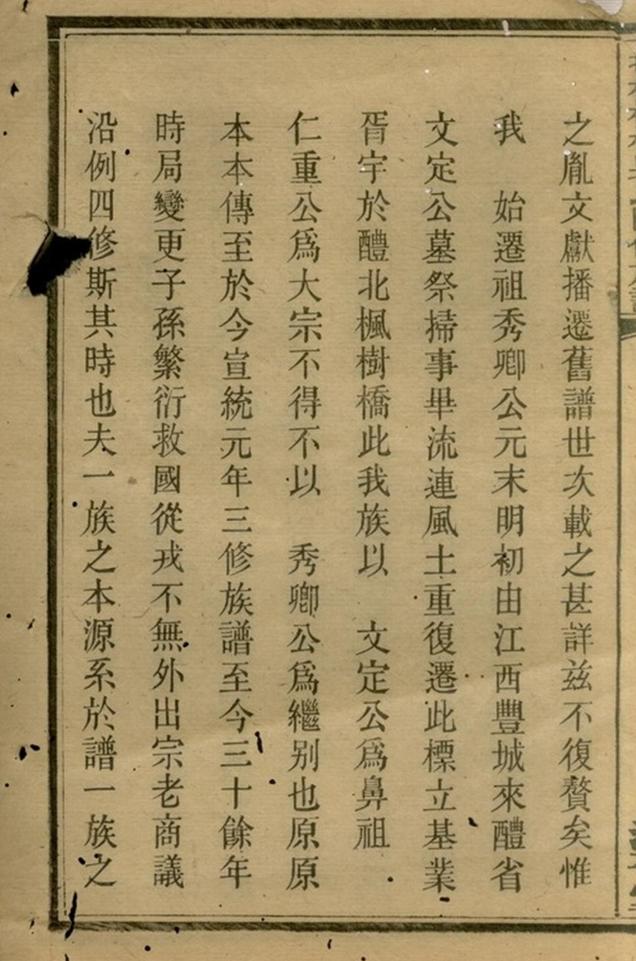 之胤文獻播遷舊譜世次載之甚詳茲不復贅矣惟
我　始遷祖秀卿公元末明初由江西豐城來醴省
文定公墓祭掃事畢流連風土重復遷此標立基業
胥宇於醴北楓樹橋此我族以　文定公爲鼻祖
仁重公爲大宗不得不以　秀卿公爲繼别也原原
本本傳至於今宣統元年三修族譜至今三十餘年
時局變更子孫繁衍救國從戎不無外出宗老商議
沿例四修斯其時也夫一族之本源系於譜一族之